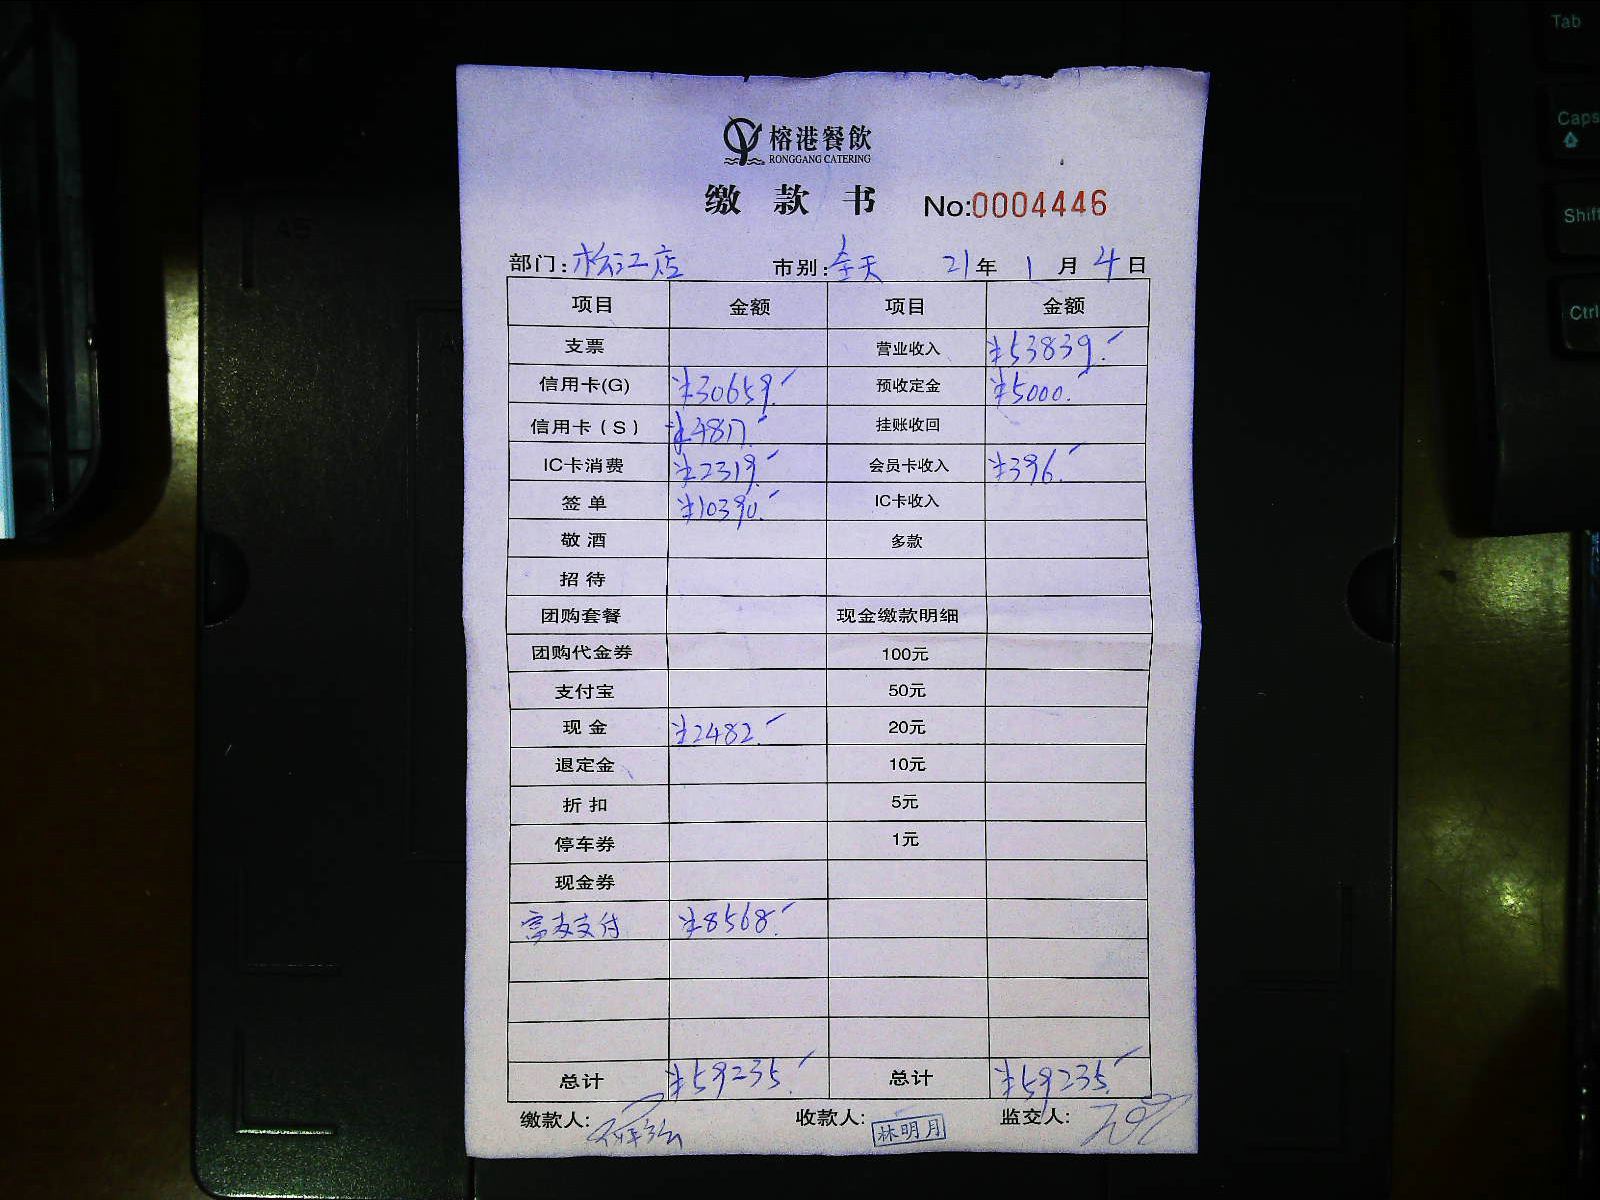 榕港餐飲
RONGGANG CATERING
缴 款 书 No:0004446
部门:松江店 市别:全天 21年 1 月 4 日
项目 金额 项目 金额
支票 营业收入 ¥53839.-
信用卡(G) ¥30659.- 预收定金 ¥5000.-
信用卡(S) ¥4817.- 挂账收回
IC卡消费 ¥2319.- 会员卡收入 ¥396.-
签单 ¥10390.- IC卡收入
敬酒 多款
招待
团购套餐 现金缴款明细
团购代金券 100元
支付宝 50元
现金 ¥2482.- 20元
退定金 10元
折扣 5元
停车券 1元
现金券
支付 ¥8568.-
总计 ¥59235.- 总计 ¥59235.-
缴款人: 收款人: 林明月 监交人:
Tab
Caps
Shift
Ctrl
A5